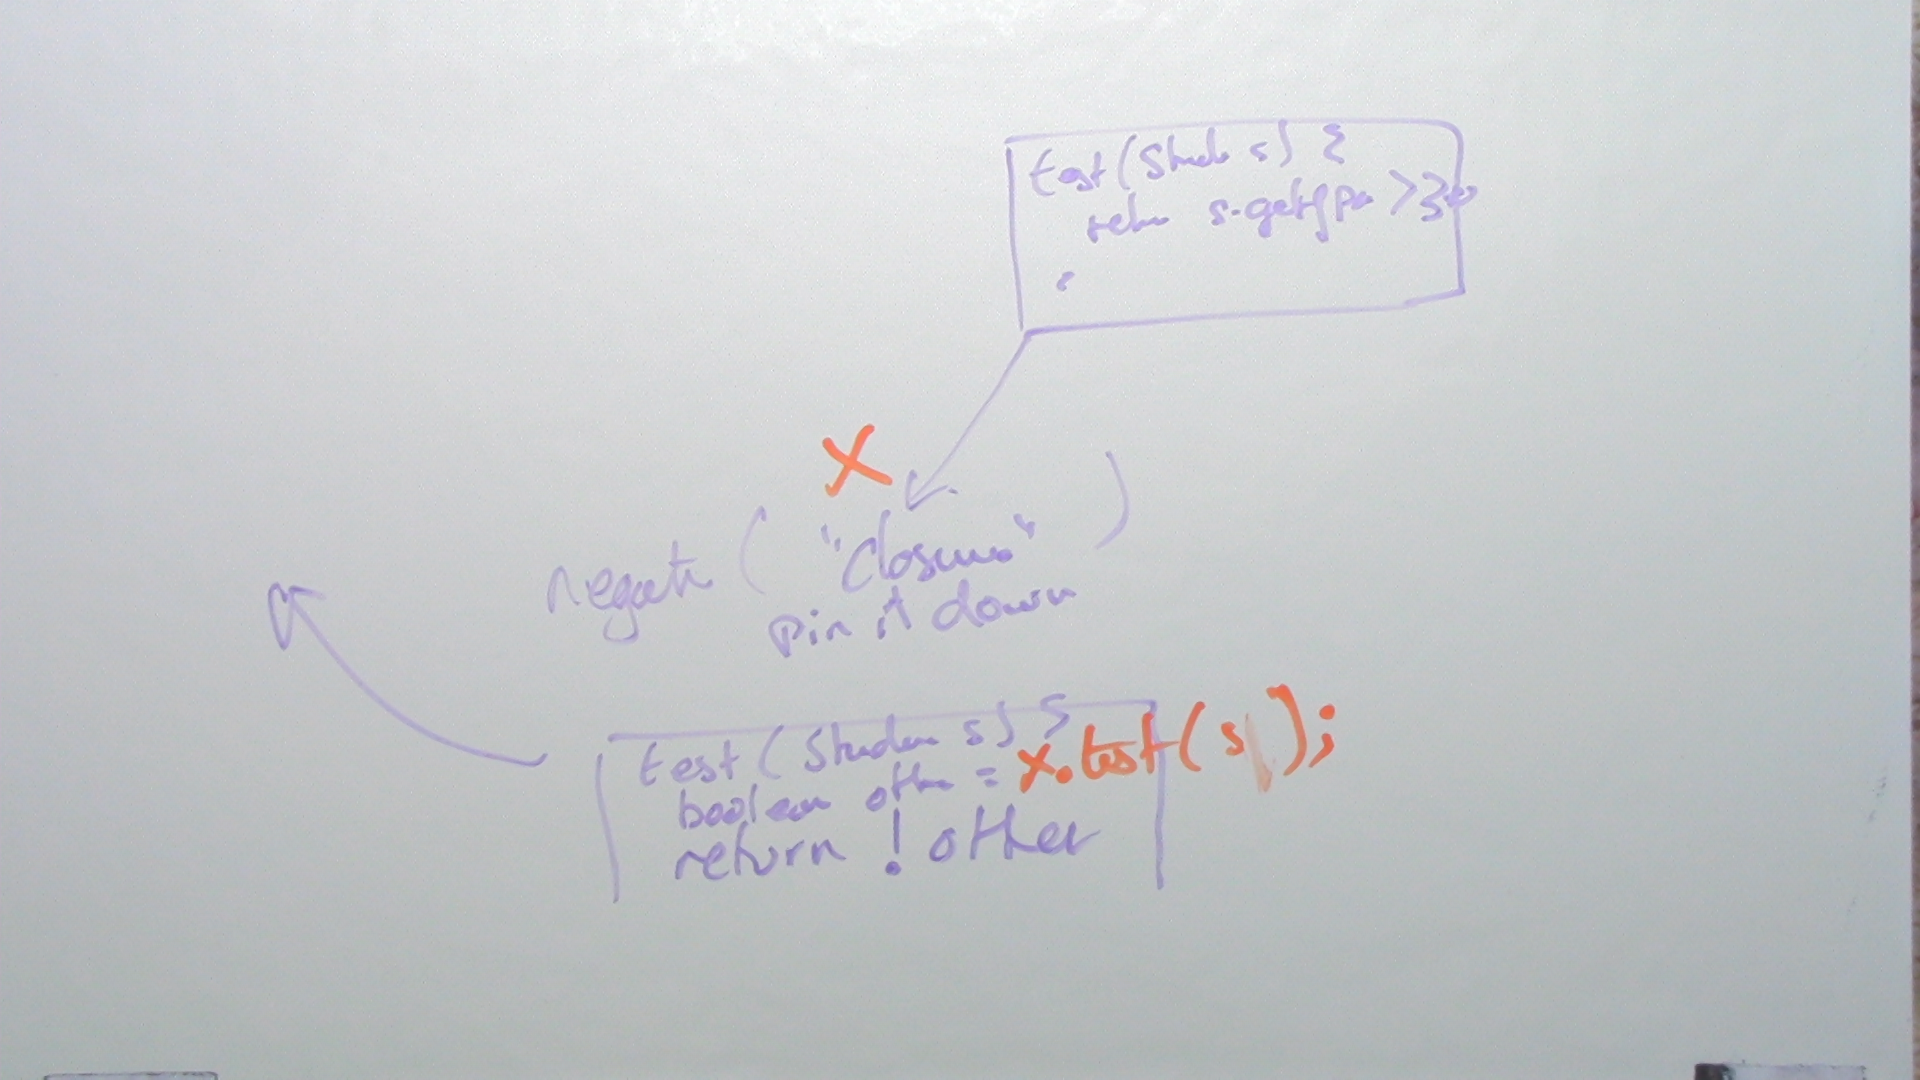 test(Stude s) {
retu s.getGpa > 3.0
X
negate ( "closure" )
pin it down
test (Studen s) {
boolean othe = x.test(s);
return ! other